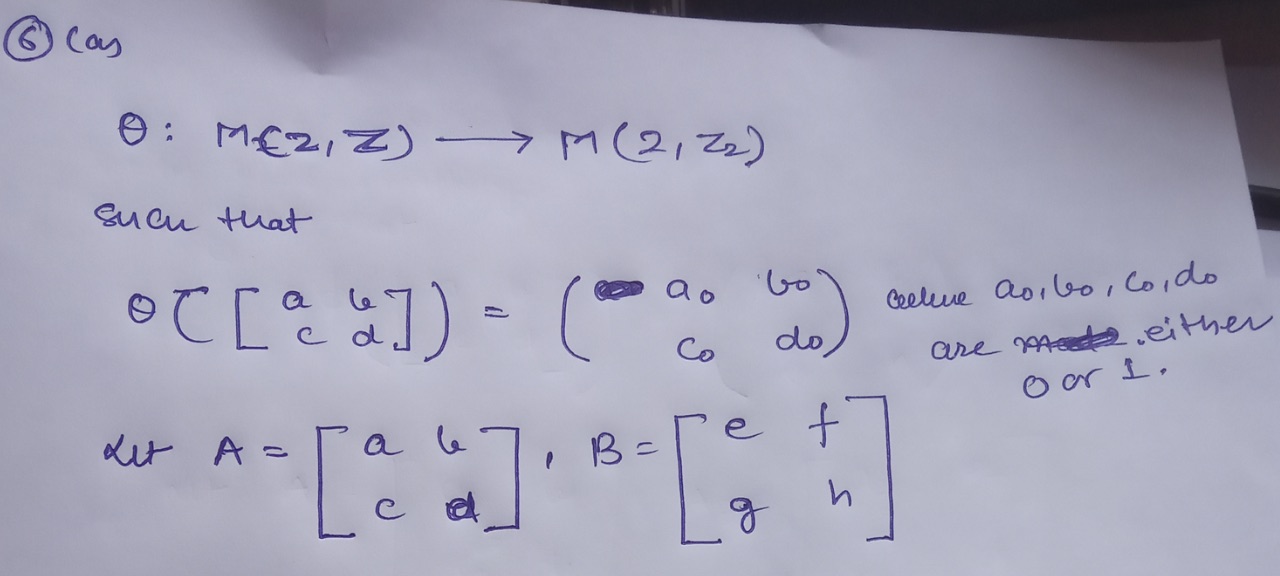 ⑥ (a)
θ: M(2, Z) → M(2, Z₂)
such that
θ([a b c d]) = (a₀ b₀ c₀ d₀) where a₀, b₀, c₀, d₀
are either
0 or 1.
Let A = [a b c d], B = [e f g h]